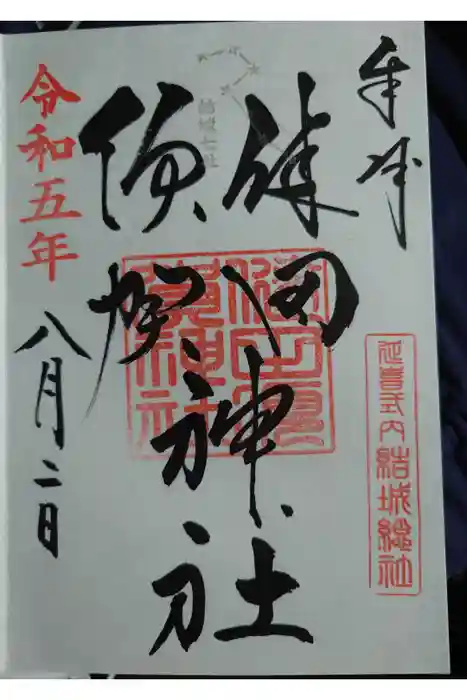 奉拝
延喜式内結城總社
健田
須賀
神社
健田須
賀神社
結城七社
令和五年
八月二日